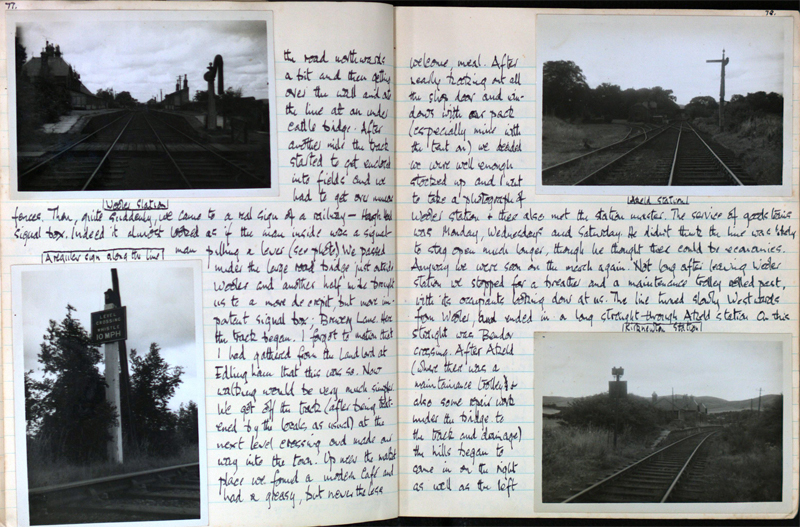 77.
the road northwards
a bit and then getting
over the wall and onto
the line at an under
cattle bridge. After
another mile the track
started to get enclosed
into fields and we
had to get over numerous
Wooler Station
fences. Then, quite suddenly, we came to a real sign of a railway — Haugh Head
signal box. Indeed it almost looked as if the man inside was a signal-
man pulling a lever (see photo) We passed
A regular sign along the line!
under the large road bridge just outside
Wooler and another half mile brought
us to a more decrepit but more im-
portant signal box. Brewery Lane. Here
the track began. I forgot to mention that
I had gathered from the landlord at
Edlingham that this was so. Now
walking would be very much simpler.
We got off the track (after being threat-
ened by the locals, as usual) at the
next level crossing and made our
way into the town. Up near the market
place we found a modern Café and
had a greasy, but never the less
LEVEL
CROSSING
WHISTLE
10 MPH
78.
welcome, meal. After
nearly knocking out all
the shop door and win-
dows with our packs
(especially mine with
the tent on) we decided
we were well enough
stocked up and I went
to take a photograph of
Akeld Station
Wooler station & there also met the station master. The service of goods trains
was Monday, Wednesdays and Saturday. He didn't think the line was likely
to stay open much longer, though he thought there could be economies.
Anyway we were soon on the march again. Not long after leaving Wooler
station we stopped for a breather and a maintenance trolley rolled past,
with its occupants looking down at us. The line turned slowly Westwards
from Wooler and ended in a long straight through Akeld station. On this
Kirknewton Station
straight was Bendor
crossing. After Akeld
(where there was a
maintainance trolley) &
also some repair work
under the bridge to
the track and drainage)
the hills began to
come in on the right
as well as the left